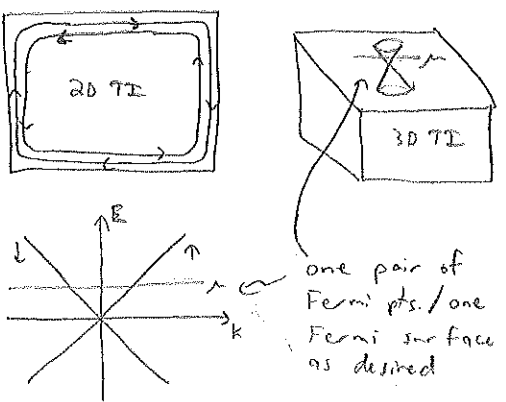 2D TI
μ
3D TI
E
↓
↑
μ
k
one pair of
Fermi pts./one
Fermi surface
as desired